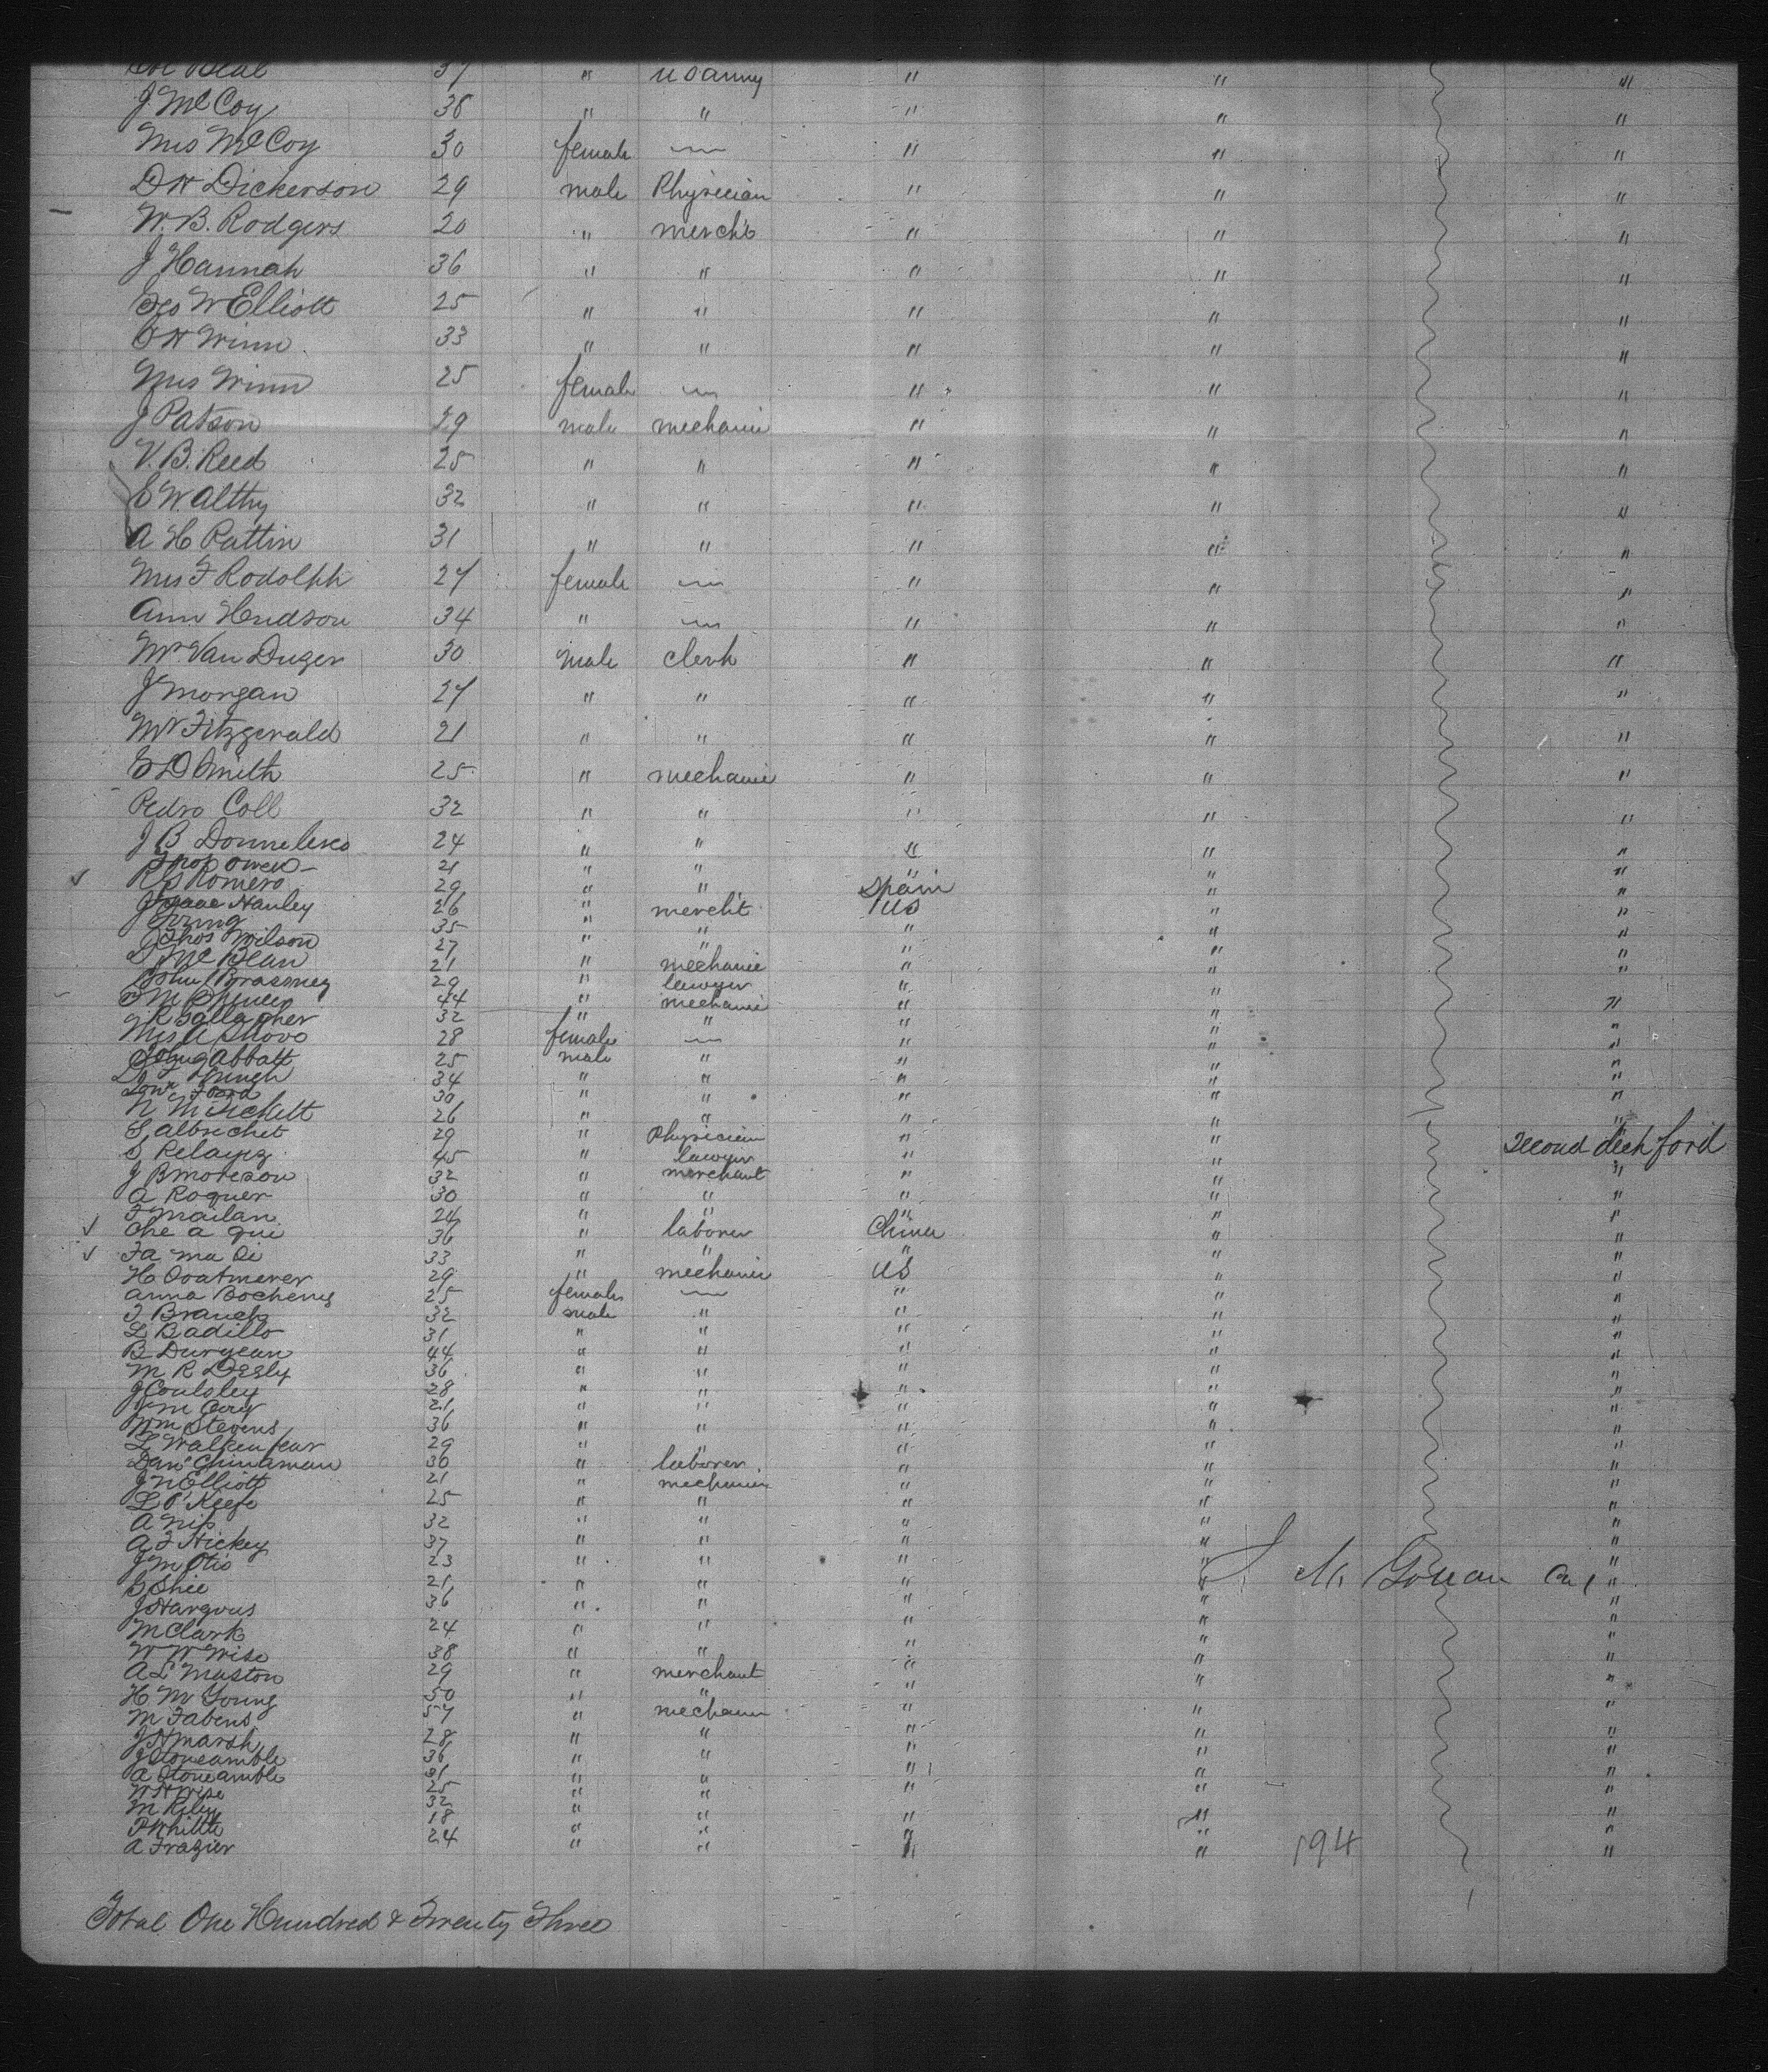 Beal 37 " US army " " "
J McCoy 36 " " " " "
Mrs McCoy 30 female — " " "
D H Dickerson 29 male Physician " " "
W. B. Rodgers 20 " mercht " " "
J Hannah 36 " " " " "
Geo W Elliott 25 " " " " "
O H Winn 33 " " " " "
Mrs Winn 25 female — " " "
J Patson 29 male mechanic " " "
V. B. Reed 25 " " " " "
E W. Althy 32 " " " " "
A H Pattin 31 " " " " "
Mrs F Rodolph 27 female — " " "
Ann Hudson 34 " — " " "
Mr Van Duzer 30 male clerk " " "
J Morgan 27 " " " " "
Mr Fitzgerald 21 " " " " "
E D Smith 25 " mechanic " " "
Pedro Coll 32 " " " " "
J B 24 " " " " "
Thos Owen 21 " " " " "
R S Romero 29 " " Spain " "
Isaac Hanley 26 " mercht US " "
J Young 35 " " " " "
Thos Wilson 27 " " " " "
McBean 21 " mechanic " " "
John 29 " lawyer " "
F M Spencer 44 " mechanic " " "
R Gallagher 32 " " " " "
Mrs A Shovo 28 female — " " "
John Abbatt 25 male " " " "
34 " " " " "
Ford 30 " " " " "
N M Tickett 26 " " " " "
S Albrichet 29 " Physician " " Second deck ford
S Relayz 45 " lawyer " " "
J B Moreson 32 " merchant " " "
A Roquer 30 " " " " "
F Mailan 24 " " " " "
Che a qui 36 " laborer China " "
Fa ma Oi 33 " " " " "
H Ooatmerer 29 " mechanic US " "
Anna Bocheny 25 female — " " "
T Branch 32 male " " " "
L Badillo 31 " " " " "
B Duryean 44 " " " " "
M R Degly 36 " " " " "
J Coulsley 28 " " " " "
J M Cary 21 " " " " "
Wm Stevens 36 " " " " "
L Walkenfear 29 " " " " "
Dan Chinaman 30 " laborer " " "
J N Elliott 21 " mechanic " " "
L O'Keefe 25 " " " " "
A Nip 32 " " " " "
A F Hickey 37 " " " " "
J M Otis 23 " " " " "
G Shie 21 " " " "
J Hargous 36 " " " " "
M Clark 24 " " " " "
W W Wise 38 " " " " "
A L Maston 29 " merchant " " "
H M Young 50 " " " " "
M Fabens 57 " mechanic " " "
J H Marsh 28 " " " " "
J Stoneamble 36 " " " " "
A Stoneamble 31 " " " " "
W H Wise 25 " " " " "
M Riley 32 " " "
P White 18 " " " " "
A Frazier 24 " " " " 194 "
Total One Hundred & Twenty Three